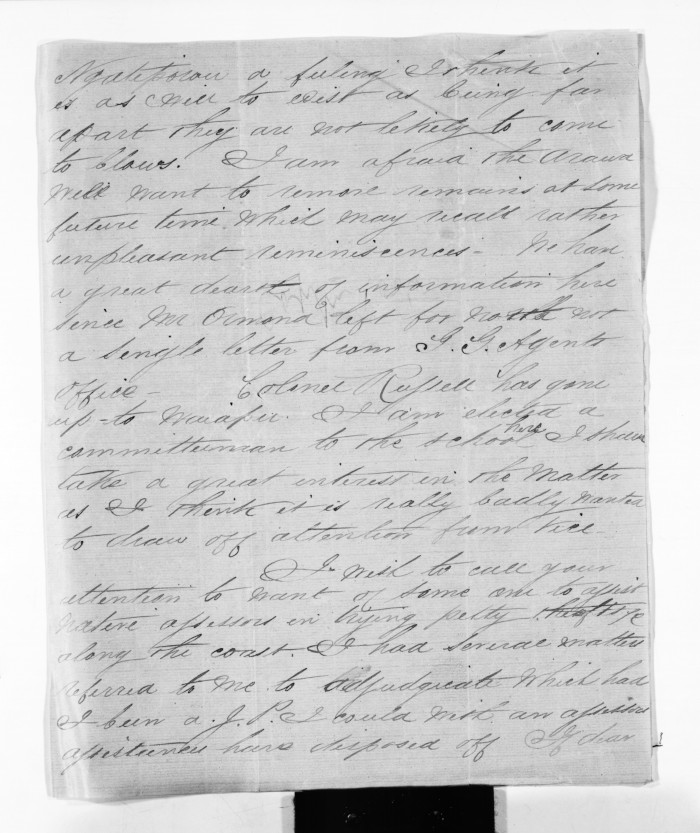 Ngatiporou a feeling I think it
is as well to exist as being far
apart they are not likely to come
to blows. I am afraid the Arawa
will want to remove remains at some
future time which may recall rather
unpleasant reminiscences - We have
a great dearth of information here
since Mr Ormond left for north not
a single letter from G. G. Agents
office - Colonel Russell has gone
up to Waiapu. I am elected a
committeeman to the school here I shall
take a great interest in the matter
as I think it is really badly wanted
to draw off attention from vice -
I wish to call your
attention to want of some one to assist
native assessors in trying petty thefts &c
along the coast. I had several matters
referred to me to adjudgicate which had
I been a J. P. I could with an assessors
assistance have disposed off